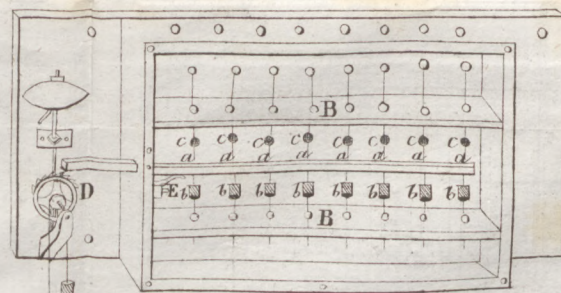 B
c c c c c c c c
a a a a a a a a
D E b b b b b b b b
B